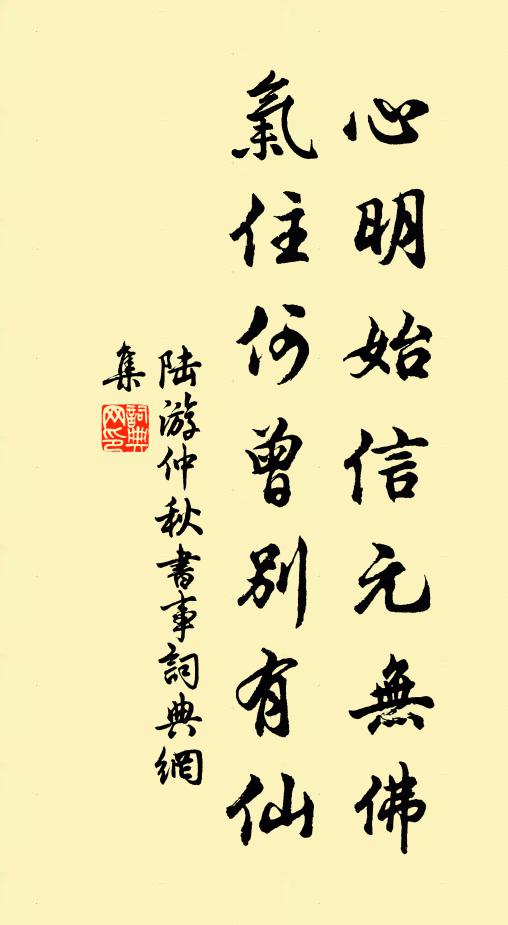 心明始信元無佛
氣住何曾別有仙
陆游仲秋書事詞典網
集
詞典网印